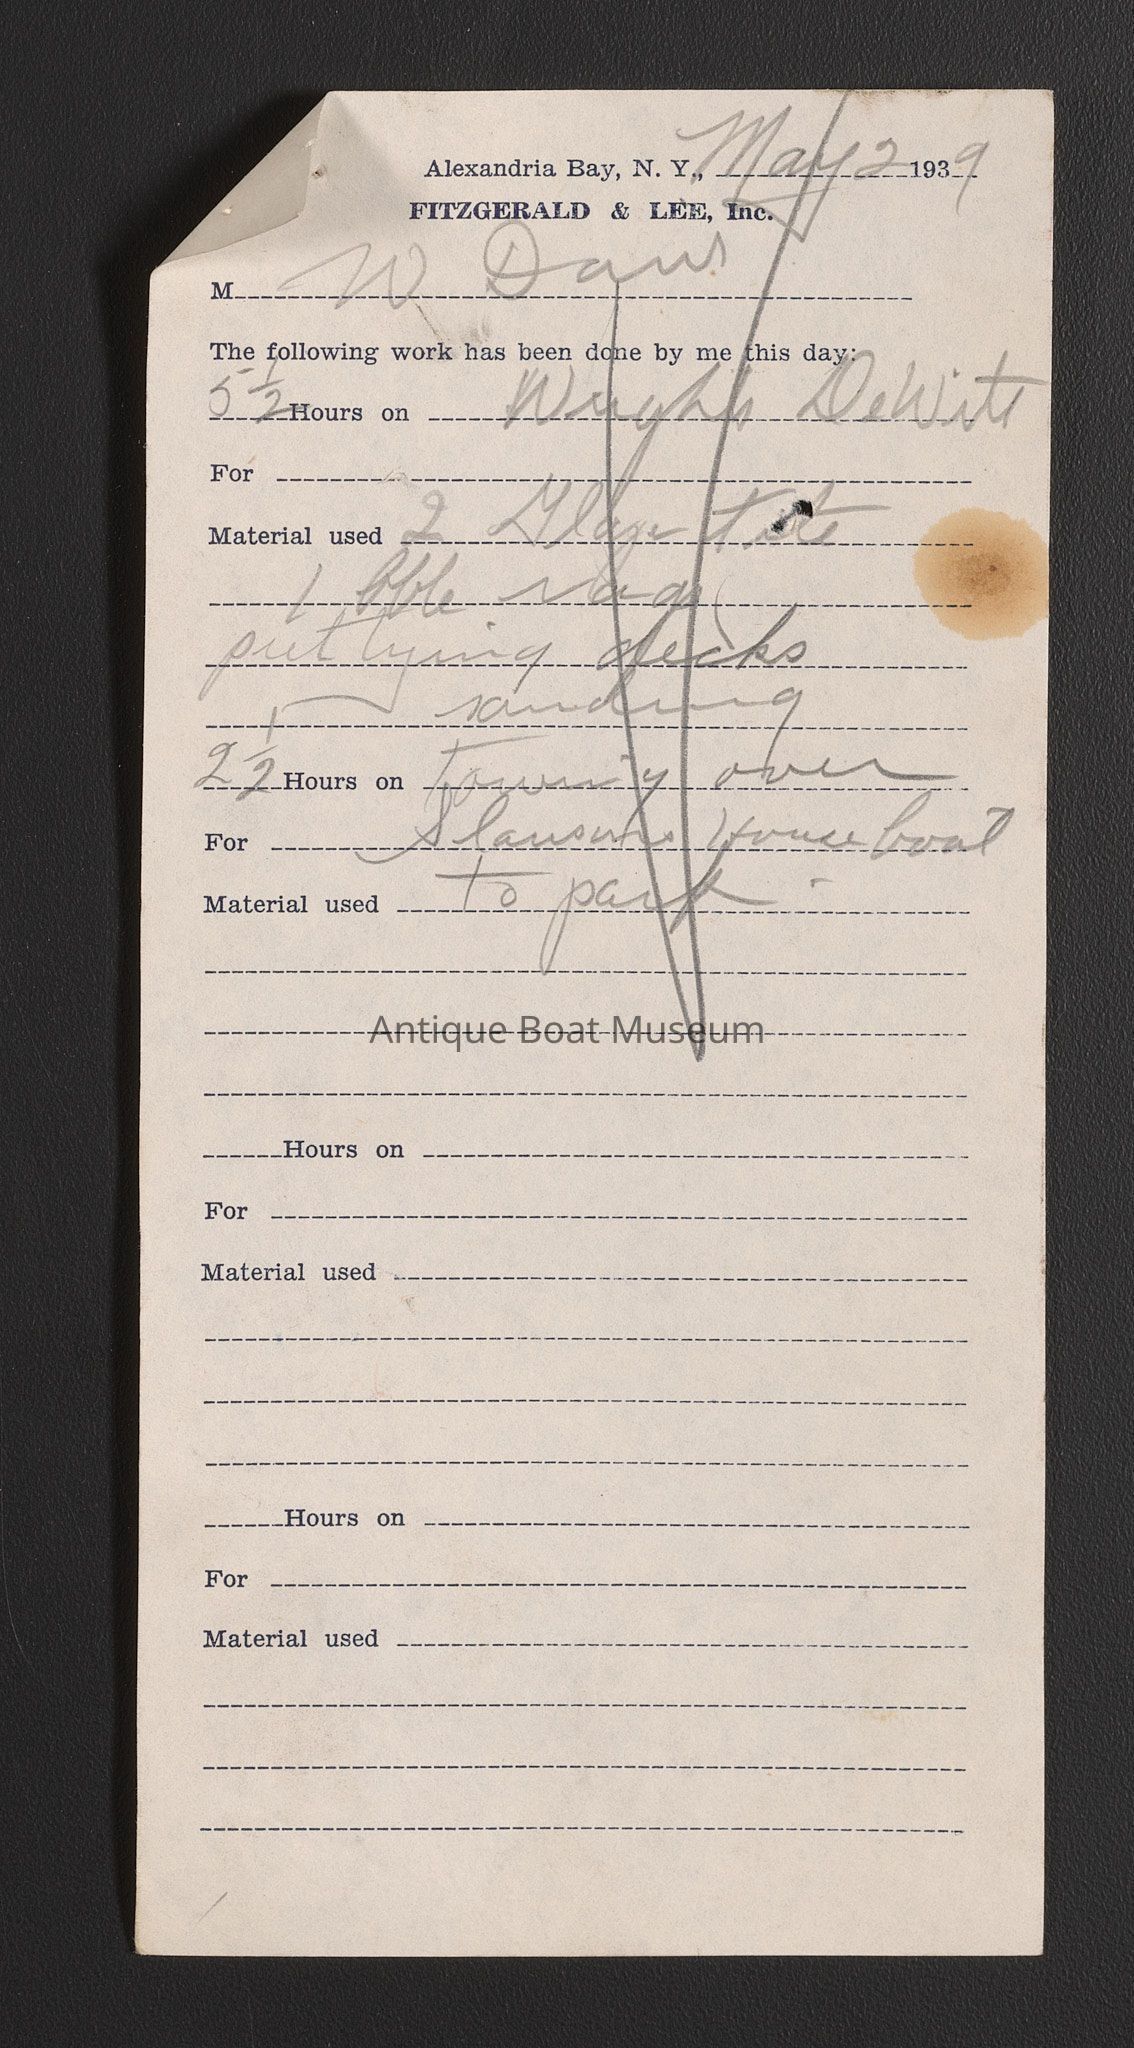 Alexandria Bay, N. Y., May 2 1939
FITZGERALD & LEE, Inc.
M W Davis
The following work has been done by me this day:
5 1/2 Hours on Wright DeWitt
For
Material used 2 Glaze tite
1
puttying decks
sanding
2 1/2 Hours on Towing over
For Slawsons House boat
Material used to park -
Antique Boat Museum
Hours on
For
Material used
Hours on
For
Material used